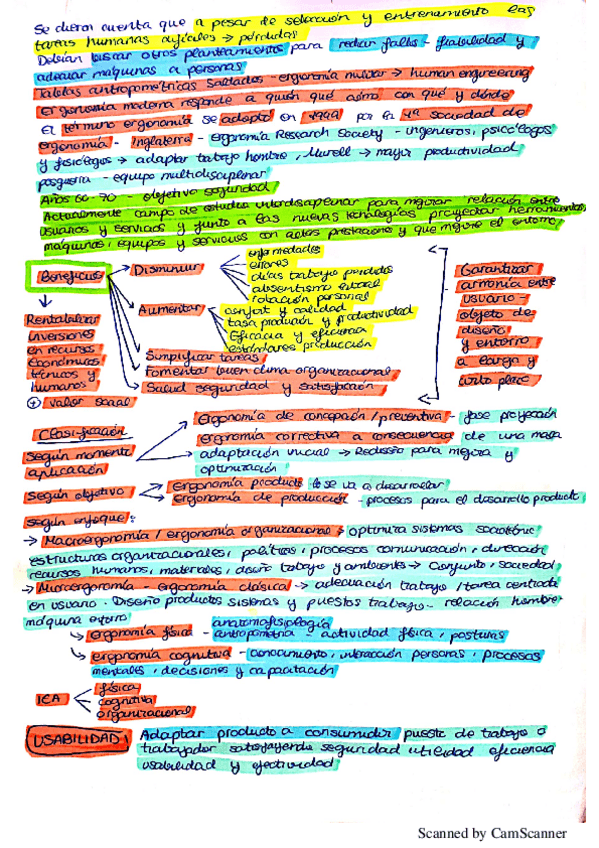 Se dieron cuenta que a pesar de selección y entrenamiento las
tareas humanas dificiles → pérdidas
Debían buscar otros planteamientos para reducir fallos - fiabilidad y
adecuar máquinas a personas
Tablas antropométricas Soldados - ergonomía militar → human engineering
Ergonomía moderna responde a quién qué cómo con qué y dónde
El término ergonomía se adoptó en 1949 por la 1ª sociedad de
ergonomía - Inglaterra - ergonomía Research Society - ingenieros, psicólogos
y fisiólogos → adaptar trabajo hombre, Murell → mayor productividad
posguerra - equipo multidisciplinar
Años 60-70 - objetivo seguridad
Actualmente campo de estudio interdisciplinar para mejorar relación entre
usuarios y servicios y junto a las nuevas tecnologías proyectar herramientas,
máquinas, equipos y servicios con altas prestaciones y que mejore el entorno
Beneficios
Disminuir
enfermedades
errores
días trabajo perdidos
absentismo laboral
rotación personal
Aumentar
confort y calidad
tasa producción y productividad
Eficacia y eficiencia
estándares producción
Simplificar tareas
Fomentar buen clima organizacional
Salud seguridad y satisfacción
Rentabilizar
inversiones
en recursos
económicos
técnicos y
humanos
⊕ valor social
Garantizar
armonía entre
usuario -
objeto de
diseño
y entorno
a largo y
corto plazo
Clasificación
según momento
aplicación
Ergonomía de concepción / preventiva - fase proyección
ergonomía correctiva a consecuencia de una mala
adaptación inicial → Rediseño para mejora y
optimización
según objetivo
Ergonomía producto lo se va a desarrollar
ergonomía de producción - procesos para el desarrollo producto
según enfoque:
→ Macroergonomía / ergonomía organizacional → optimiza sistemas
estructuras organizacionales, políticas, procesos comunicación, dirección
recursos humanos, materiales, diseño trabajo y ambiente → Conjunto, sociedad
→ Microergonomía - ergonomía clásica → adecuación trabajo / tarea centrada
en usuario. Diseño productos sistemas y puestos trabajo - relación hombre-
máquina entorno
anatomofisiología
↳ ergonomía física - antropometría actividad física, posturas
↳ ergonomía cognitiva - conocimiento, interacción personas, procesos
mentales, decisiones y capacitación
IEA
física
cognitiva
organizacional
USABILIDAD
Adaptar producto a consumidor puesto de trabajo o
trabajador satisfayendo seguridad utilidad eficiencia
usabilidad y efectividad
Scanned by CamScanner